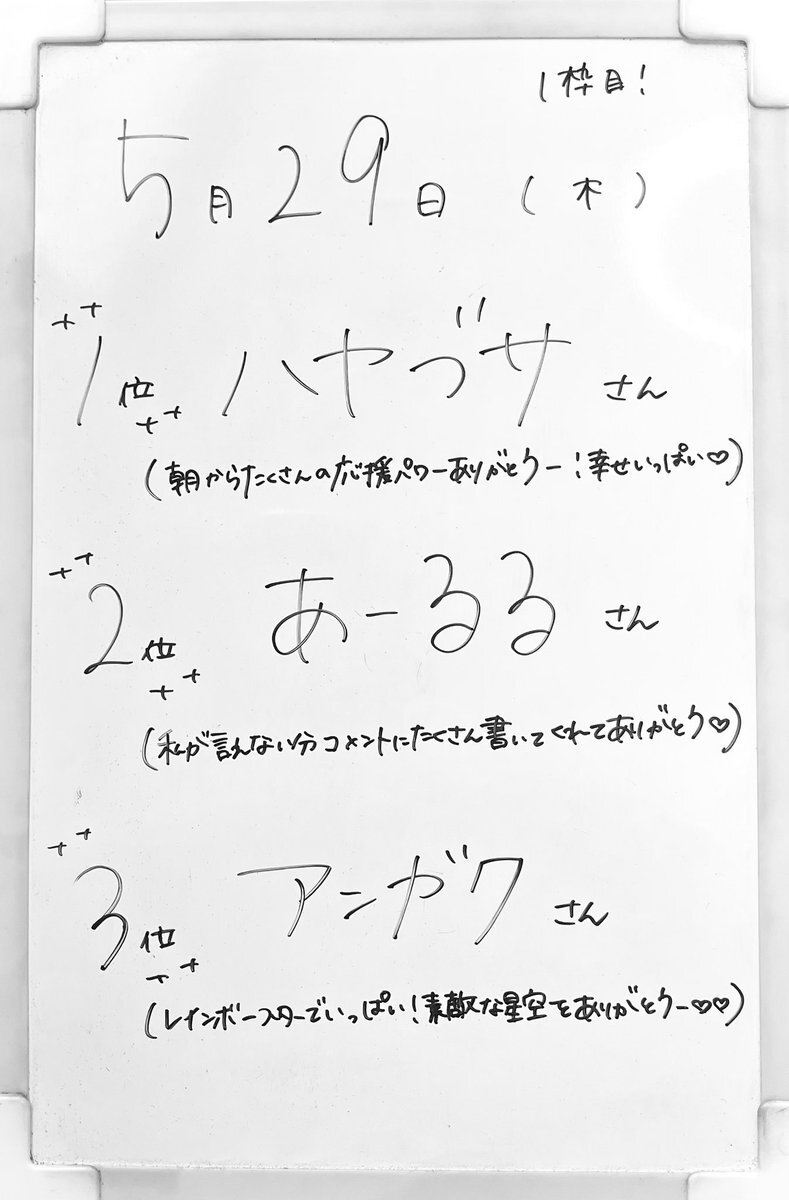 1枠目!
5月29日(木)
1位 ハヤブサ さん
(朝からたくさんの応援パワーありがとうー!幸せいっぱい♡)
2位 あーるる さん
(私が言えない分コメントにたくさん書いてくれてありがとう♡)
3位 アンガク さん
(レインボースターでいっぱい!素敵な星空をありがとうー♡♡)